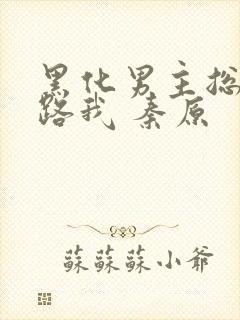 黑化男主总
路我 秦原
蘇蘇蘇小爺